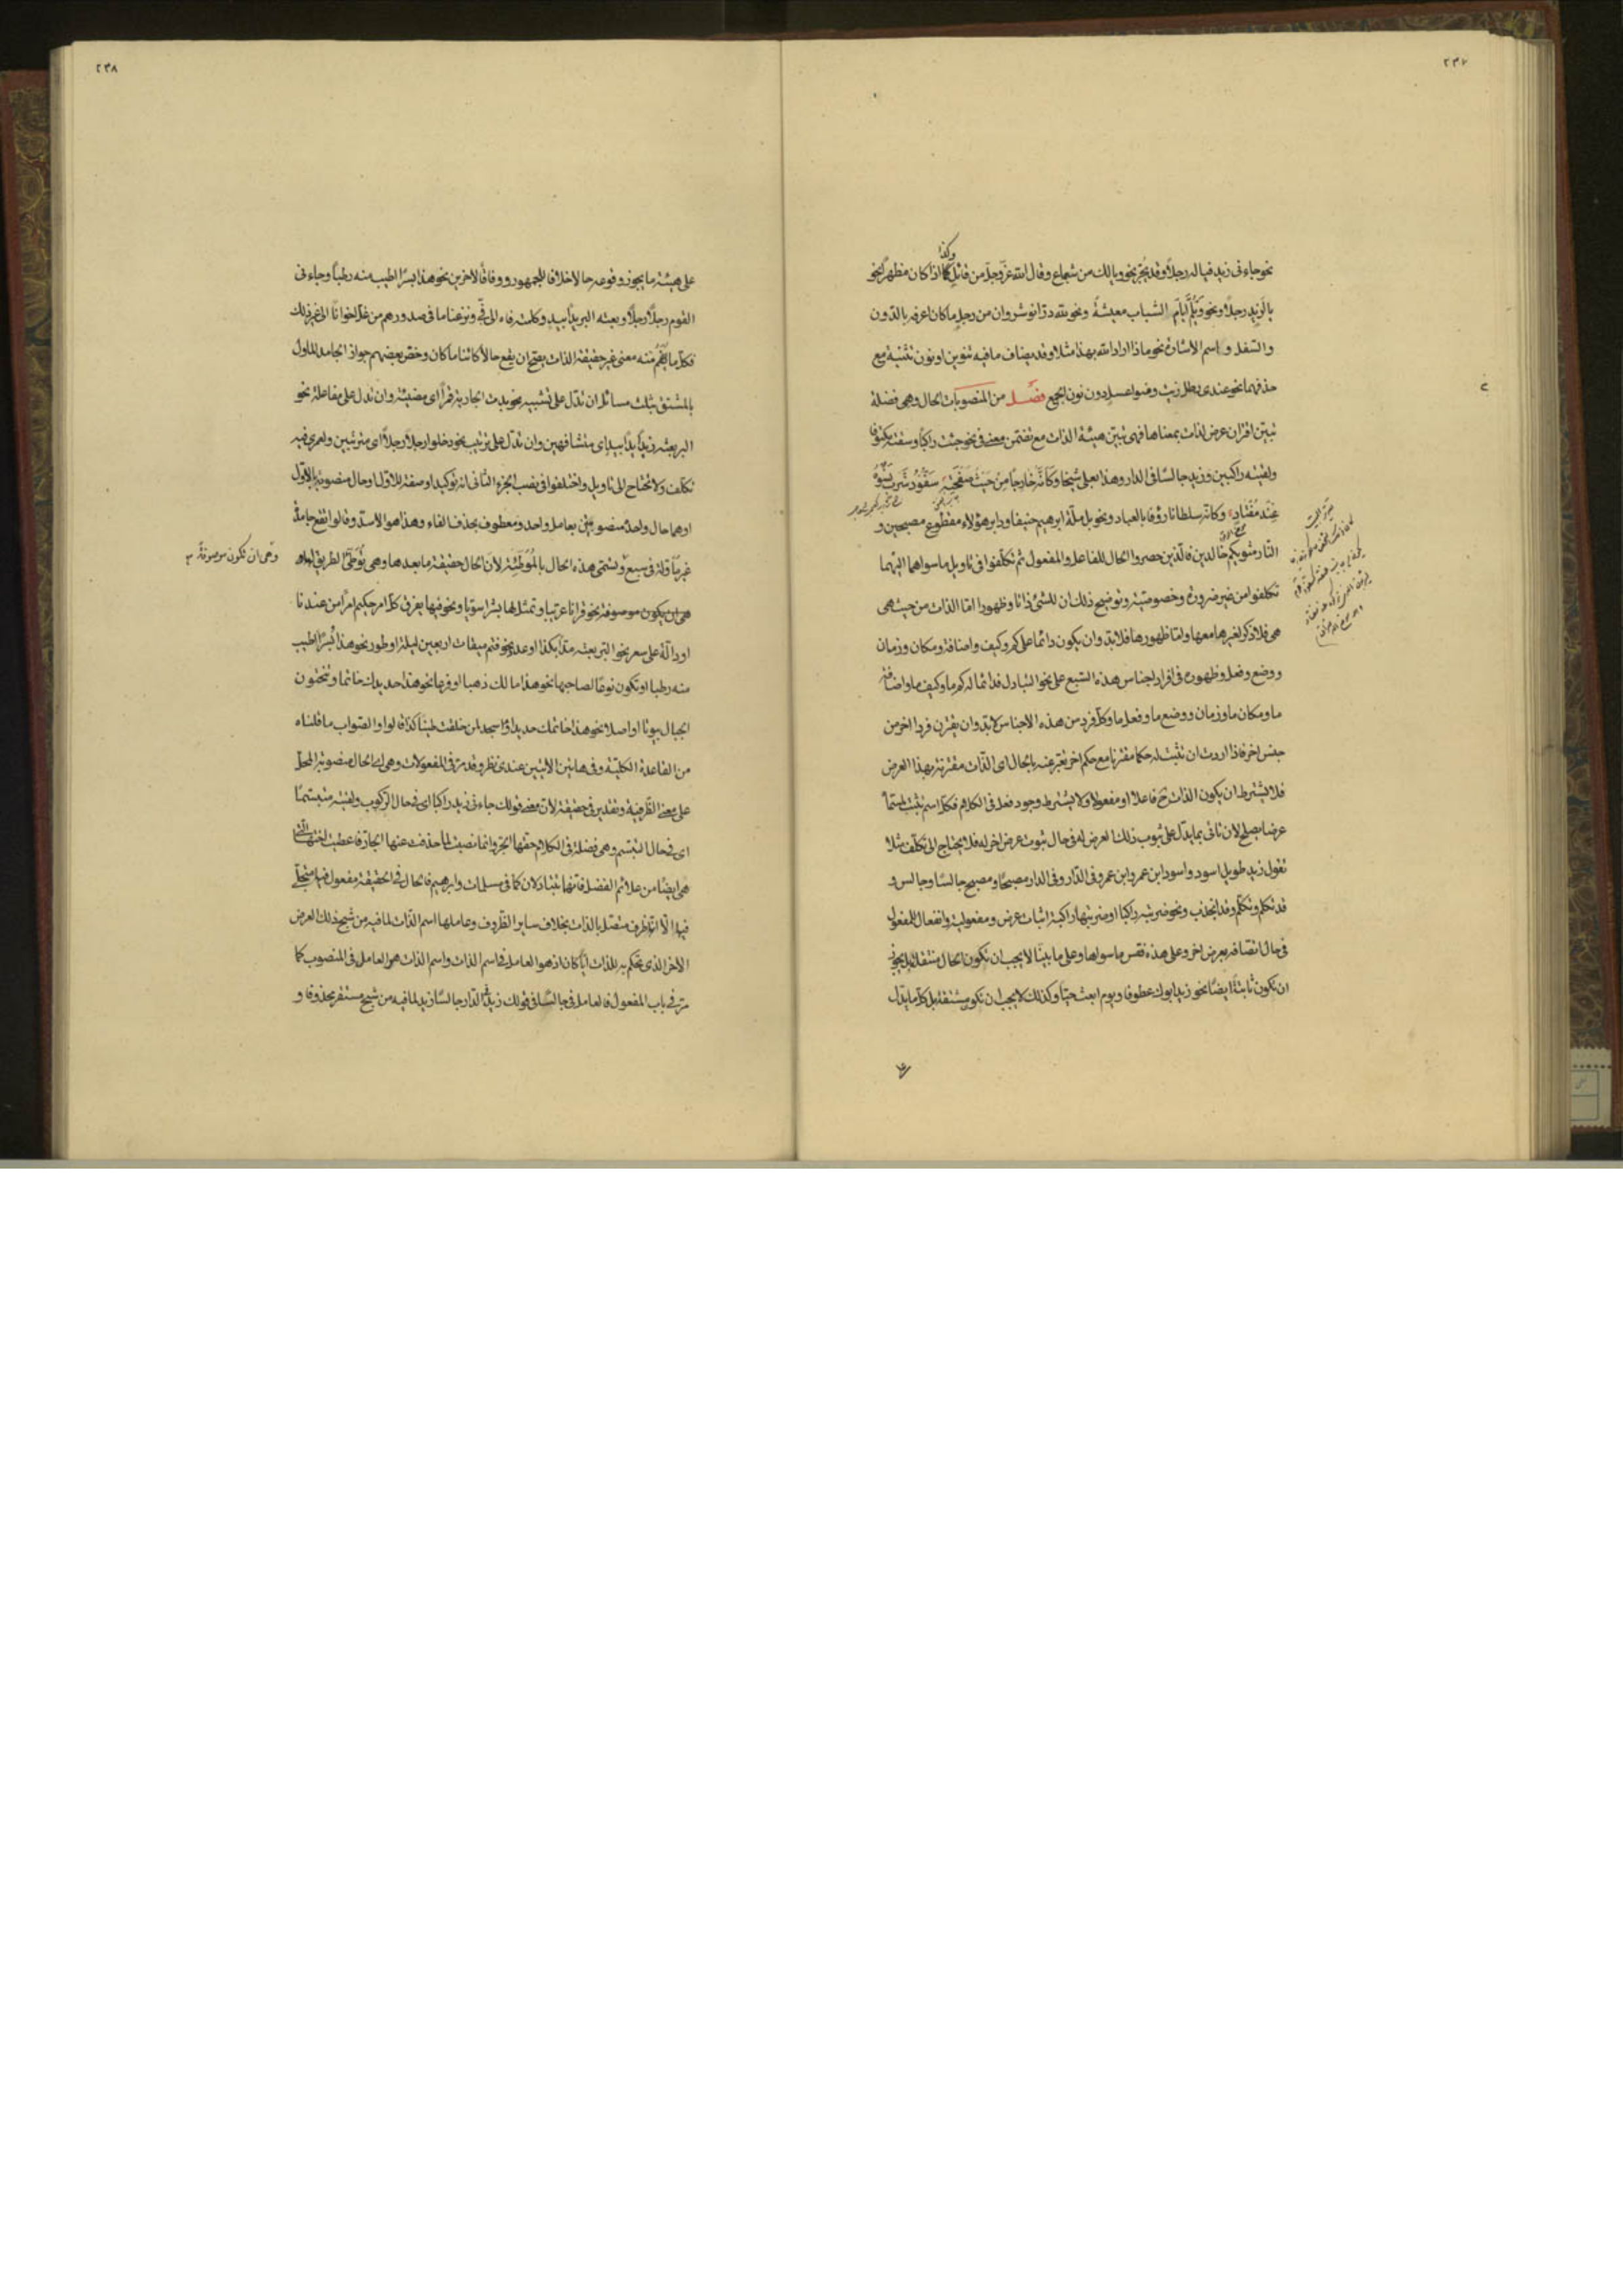 ٢٣٧
نحو جاءنی زيد فياله رجلاً وقد يجر نحو ويالك من شجاع وقال الله عز وجل من قائل وكذا اذا كان مظهراً نحو
يالزيد رجلاً ونحو الشباب معيشةً ونحو لله در انوشروان من رجل ما كان اعرفه بالدون
والسفل و اسم الاشارة نحو ماذا اراد الله بهذا مثلا وقد يضاف ما فيه تنوين او نون تثنية مع
حذفهما نحو عندی رطل زيت ومنوا عسل دون نون الجمع فصـل من المنصوبات الحال وهی فضلة
تبين اقتران عرض لذات بمعناها فهی تبين هيئة الذات مع تضمن معنی فی نحو جئت راكباً وسقته مكتوفا
ولقيته راكبين وزيد جالسا فی الدار وهذا بعلی شيخا وكأنه خارجا من جنب صفحته سفود شرب نسوه
عند مفتأد وكانه سلطانا رؤفا بالعباد ونحو بل ملة ابرهيم حنيفا ودابر هؤلاء مقطوع مصبحين و
النار مثويكم خالدين فالذين حصروا الحال للفاعل والمفعول ثم تكلفوا فی تاويل ما سواهما اليهما
تكلفوا من غير ضرورة وخصوصية وتوضيح ذلك ان للشیء ذاتا وظهورا اما الذات من حيث هی
هی فلا ذكر لغيرها معها واما ظهورها فلابد وان يكون دائما علی كم وكيف واضافة ومكان وزمان
ووضع وفعل وظهوره فی افراد اجناس هذه السبع علی نحو التبادل فدائما له كم ما وكيف ما واضافة
ما ومكان ما وزمان ووضع ما وفعل ما وكل فرد من هذه الاجناس لابد وان يقترن فردا اخر من
جنس اخر فاذا اردت ان تثبت له حكما مقترنا مع حكم اخر تعبر عنه بالحال ای الذات مقترنة بهذا العرض
فلا يشترط ان يكون الذات ح فاعلا او مفعولا ولا يشترط وجود فعل فی الكلام فكل اسم تثبت لمسماه
عرضا يصلح لان تاتی بما يدل علی ثبوت ذلك العرض له فی حال ثبوت عرض اخر له فلا يحتاج الی تكلف مثلا
تقول زيد طويل اسود واسود ابن عمرو ابن عمرو فی الدار وفی الدار مصبحا ومصبح جالسا وجالس و
قد تكلم وتكلم وقد انجذب ونحو ضربته راكبا او ضربتها راكبة اثبات عرض ومفعولية وانفعال للمفعول
فی حال اتصافه بعرض اخر وعلی هذه فقس ما سواها وعلی ما بينا لا يجب ان تكون الحال منتقلة بل يجوز
ان تكون ثابتة ايضا نحو زيد ابوك عطوفا ويوم ابعث حيّا وكذلك لا يجب ان تكون مشتقة بل كل ما يدل
٢٣٨
علی هيئة ما يجوز وقوعه حالا خلافا للجمهور ووفاقا لاخرين نحو هذا بسرًا اطيب منه رطبا وجاءنی
القوم رجلًا رجلًا وبعته البر يدًا بيد وكلمته فاه الی فیّ ونزعنا ما فی صدورهم من غل اخوانا الی غير ذلك
فكل ما يفهم منه معنی غير حقيقة الذات يصح ان يقع حالا كائنا ما كان وخص بعضهم جواز الجامد المأول
بالمشتق بثلث مسائل ان تدل علی تشبيه نحو بدت الجارية قمراً ای مضيئة وان تدل علی مفاعلة نحو
البر بعته يداً بيد ای متشافهين وان تدل علی ترتيب نحو دخلوا رجلا رجلاً ای مترتبين ولعمری فيه
تكلف ولا تحتاج الی تاويل واختلفوا فی نصب الجزء الثانی انه توكيد او صفة للاول او حال منصوبة بالاول
او هما حال واحد منصوبتين بعامل واحد ومعطوف بحذف الفاء وهذا هو الاسد وقالوا تقع جامدة
غير مأولة فی سبع وتسمی هذه الحال بالموطئة لان الحال حقيقة ما بعدها وهی توطئ الطريق لها
وهی ان تكون موصوفة
هی ان يكون موصوفة نحو قرانا عربيا وتمثل لها بشرا سويّا ونحو فيها يفرق كل امر حكيم امرًا من عندنا
او دالة علی سعر نحو البر بعته مدّا بكذا او عدد نحو فتم ميقات اربعين ليلة او طور نحو هذا بُسرًا اطيب
منه رطبا او تكون نوعا لصاحبها نحو هذا مالك ذهبا او فرعا نحو هذا حديدك خاتما وتنحتون
الجبال بيوتا او اصلا نحو هذا خاتمك حديدا وءاسجد لمن خلقت طينا كذا قالوا والصواب ما قلناه
من القاعدة الكلية وفی هاتين الايتين عندی نظر وقد مر فی المفعولات وهی ای الحال منصوبة المحل
علی معنی الظرفية وتقدير فی حقيقة لان معنی قولك جاءنی زيد راكبا ای فی حال الركوب ولقيته متبسّمًا
ای فی حال التبسم وهی فضلة فی الكلام حقها الجر وانما نصبت لما حذفت عنها الجارة فاعطيت اختها التی
هی ايضا من علائم الفضل فانهما تتبادلان كما فی مسلمات وابرهيم فالحال فی الحقيقة مفعول فيها
فيها الا انها ظرف متصل بالذات بخلاف ساير الظروف وعاملها اسم الذات لما فيه من شبح ذلك العرض
الاخر الذی تحكم به للذات ايّا كان اذ هو العامل فی اسم الذات واسم الذات هو العامل فی المنصوب كما
مر فی باب المفعول فالعامل فی جالسًا فی قولك زيد فی الدار جالسًا زيد لما فيه من شبح مستقر محذوفا و